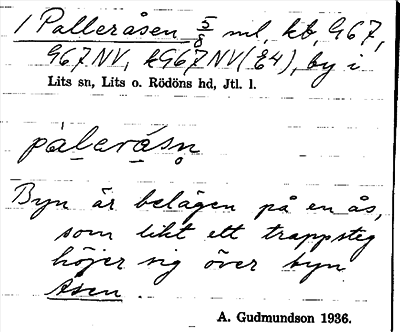 1 Palleråsen 5/8 ml, kb, G67,
G67NV, kG67NV(E4), by i
Lits sn, Lits o. Rödöns hd, Jtl. l.
palerásn
Byn är belägen på en ås,
som likt ett trappsteg
höjer sig över byn
Åsen.
A. Gudmundson 1936.